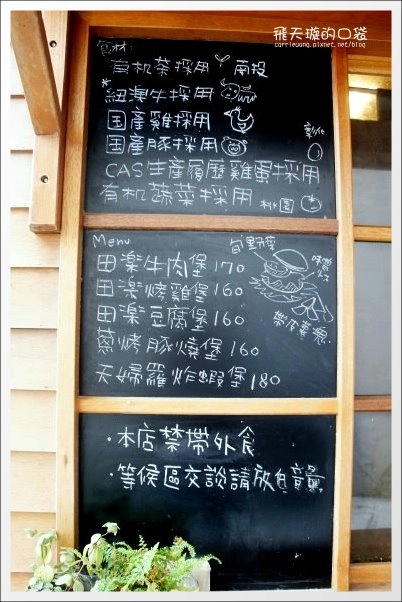 飛天璇的口袋
carrieuang.pixnet.net/blog
食材:
有机菜採用 南投
紐楽牛採用
国產雞採用
国產豚採用
彰化
CAS生產履歷雞蛋採用
有机蔬菜採用 桃園
Menu
田楽牛肉堡 170
田楽烤雞堡 160
田楽豆腐堡 160
蔥烤豚燒堡 160
天婦羅炸蝦堡 180
帶皮薯塊
·本店禁帶外食
·等候區交談請放低音量